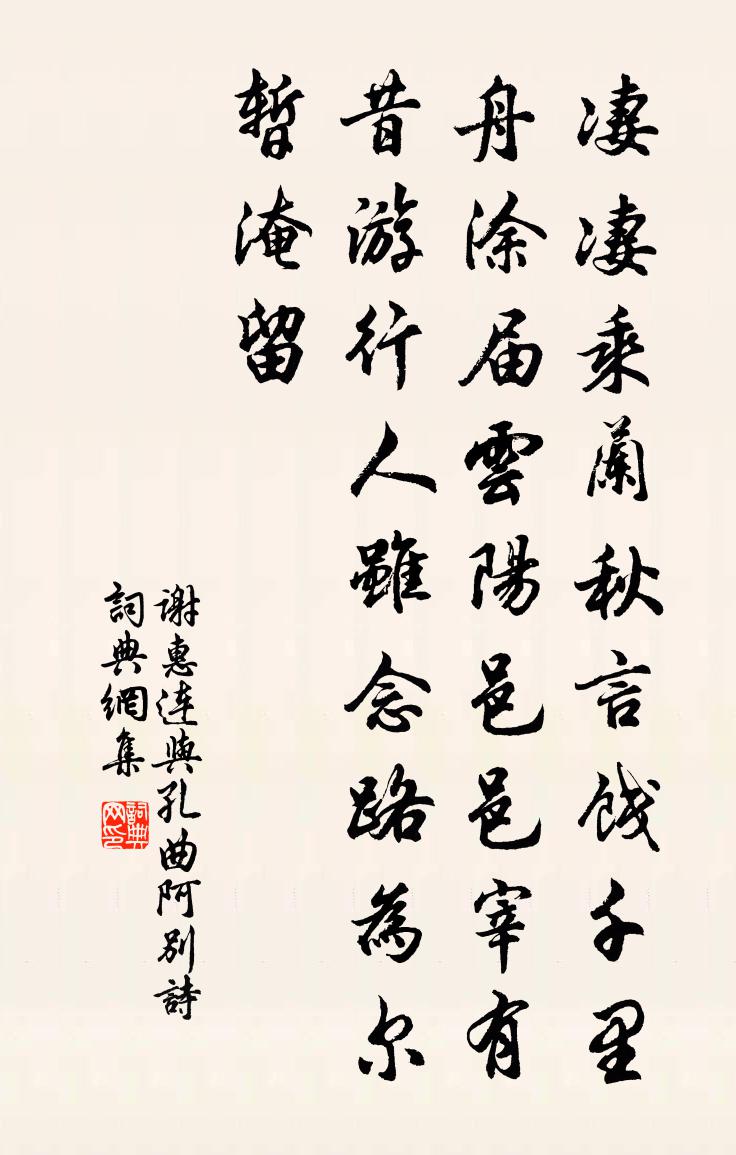 凄凄乘蘭秋言餞千里
舟涂届雲陽邑邑宰有
昔游行人雖念路為尔
暫淹留
謝惠連與孔曲阿别詩
詞典網集
詞典网印